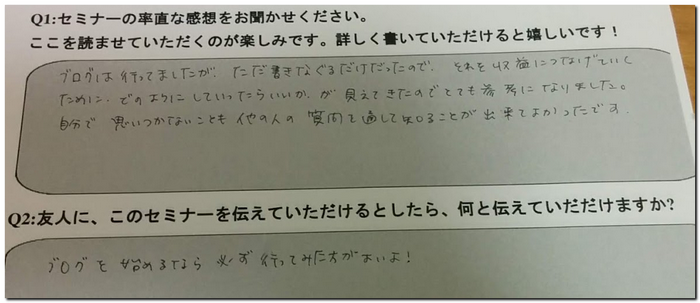 Q1:セミナーの率直な感想をお聞かせください。
ここを読ませていただくのが楽しみです。詳しく書いていただけると嬉しいです！
ブログは行ってましたが、ただ書きなぐるだけだったので、それを収益につなげていく
ために、どのようにしていったらいいか、が見えてきたのでとても参考になりました。
自分で思いつかないことも他の人の質問を通して知ることが出来てよかったです。
Q2:友人に、このセミナーを伝えていただけるとしたら、何と伝えていだだけますか?
ブログを始めるなら必ず行ってみた方がよいよ！